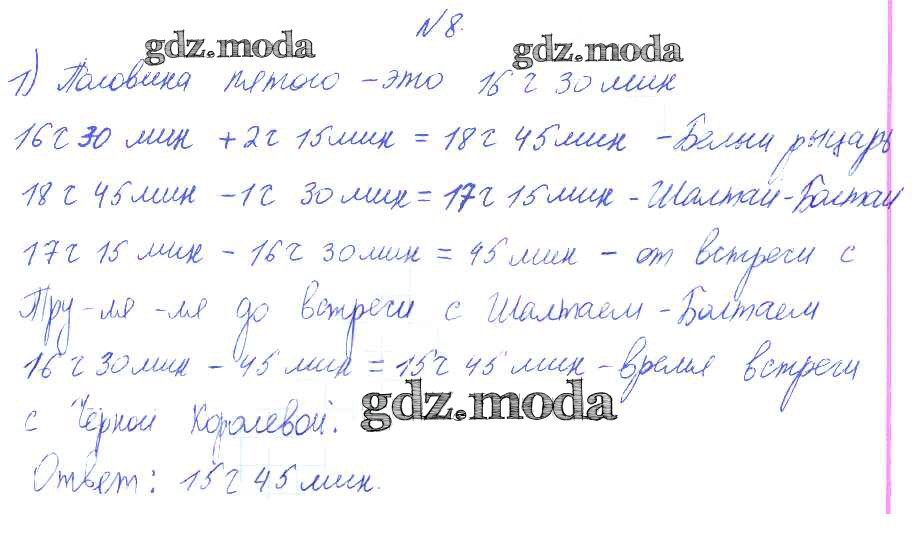 № 8.
gdz.moda gdz.moda
1) Половина пятого – это 16 ч 30 мин
16 ч 30 мин + 2 ч 15 мин = 18 ч 45 мин – Белый рыцарь
18 ч 45 мин – 1 ч 30 мин = 17 ч 15 мин – Шалтай-Болтай
17 ч 15 мин – 16 ч 30 мин = 45 мин – от встречи с
Тру-ля-ля до встречи с Шалтаем-Болтаем
16 ч 30 мин – 45 мин = 15 ч 45 мин – время встречи
с Чёрной Королевой.
gdz.moda
Ответ: 15 ч 45 мин.